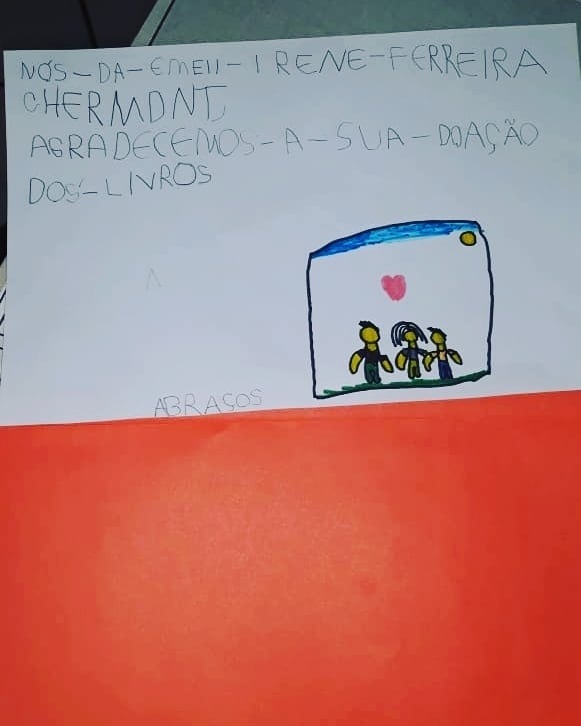 NÓS-DA-EMEII-IRENE-FERREIRA
CHERMONT
AGRADECEMOS-A-SUA-DOAÇÃO
DOS-LIVROS
ABRASOS